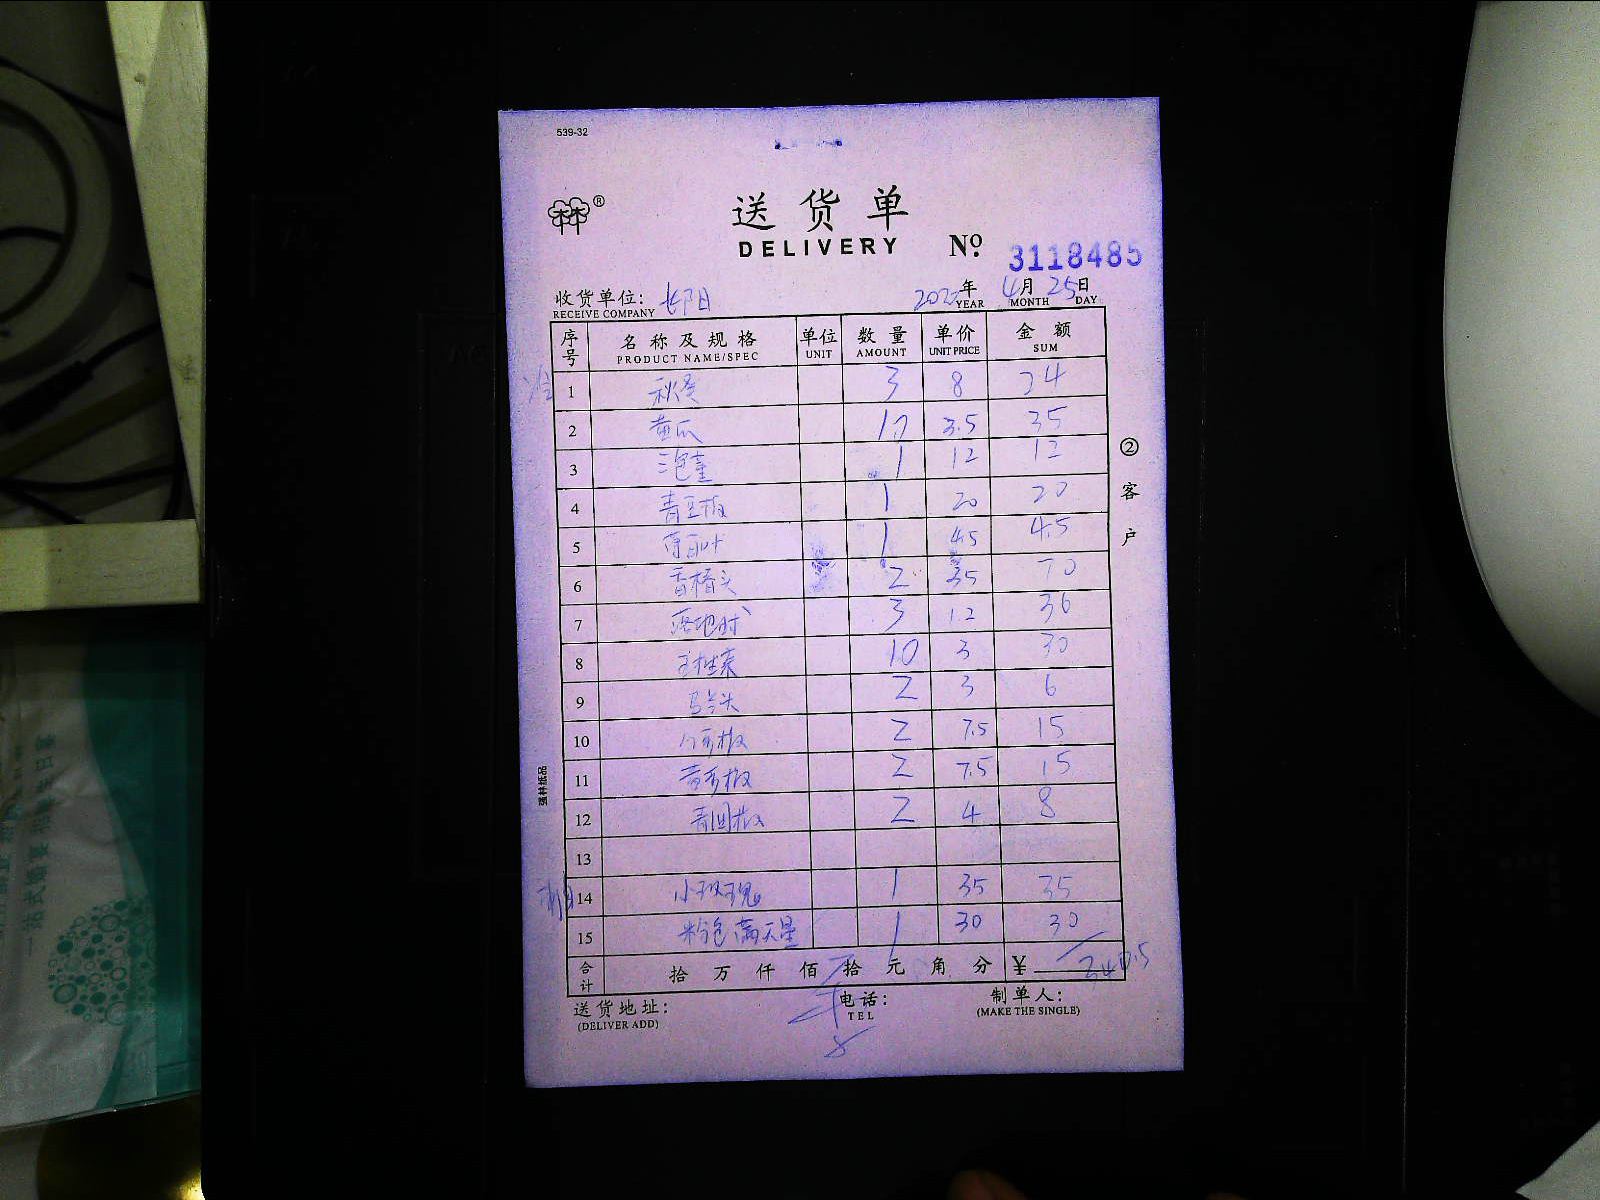 539-32
林®
送货单
DELIVERY
No. 3118485
收货单位: 长阳 年 4月 25日
RECEIVE COMPANY YEAR MONTH DAY
序号 名称及规格 单位 数量 单价 金额
PRODUCT NAME/SPEC UNIT AMOUNT UNIT PRICE SUM
冷
1 秋葵 3 8 24
2 黄瓜 10 3.5 35
3 1 12 12
4 1 20 20
5 薄百叶 1 4.5 4.5
6 香椿头 2 35 70
7 3 12 36
8 10 3 30
9 马兰头 2 3 6
10 2 7.5 15
11 黄彩椒 2 7.5 15
12 青圆椒 2 4 8
13
14 小玫瑰 1 35 35
15 粉色满天星 1 30 30
合计 拾 万 仟 佰 拾 元 角 分 ¥ 340.5
送货地址: 电话: 制单人:
(DELIVER ADD) TEL (MAKE THE SINGLE)
②客户
强林纸品